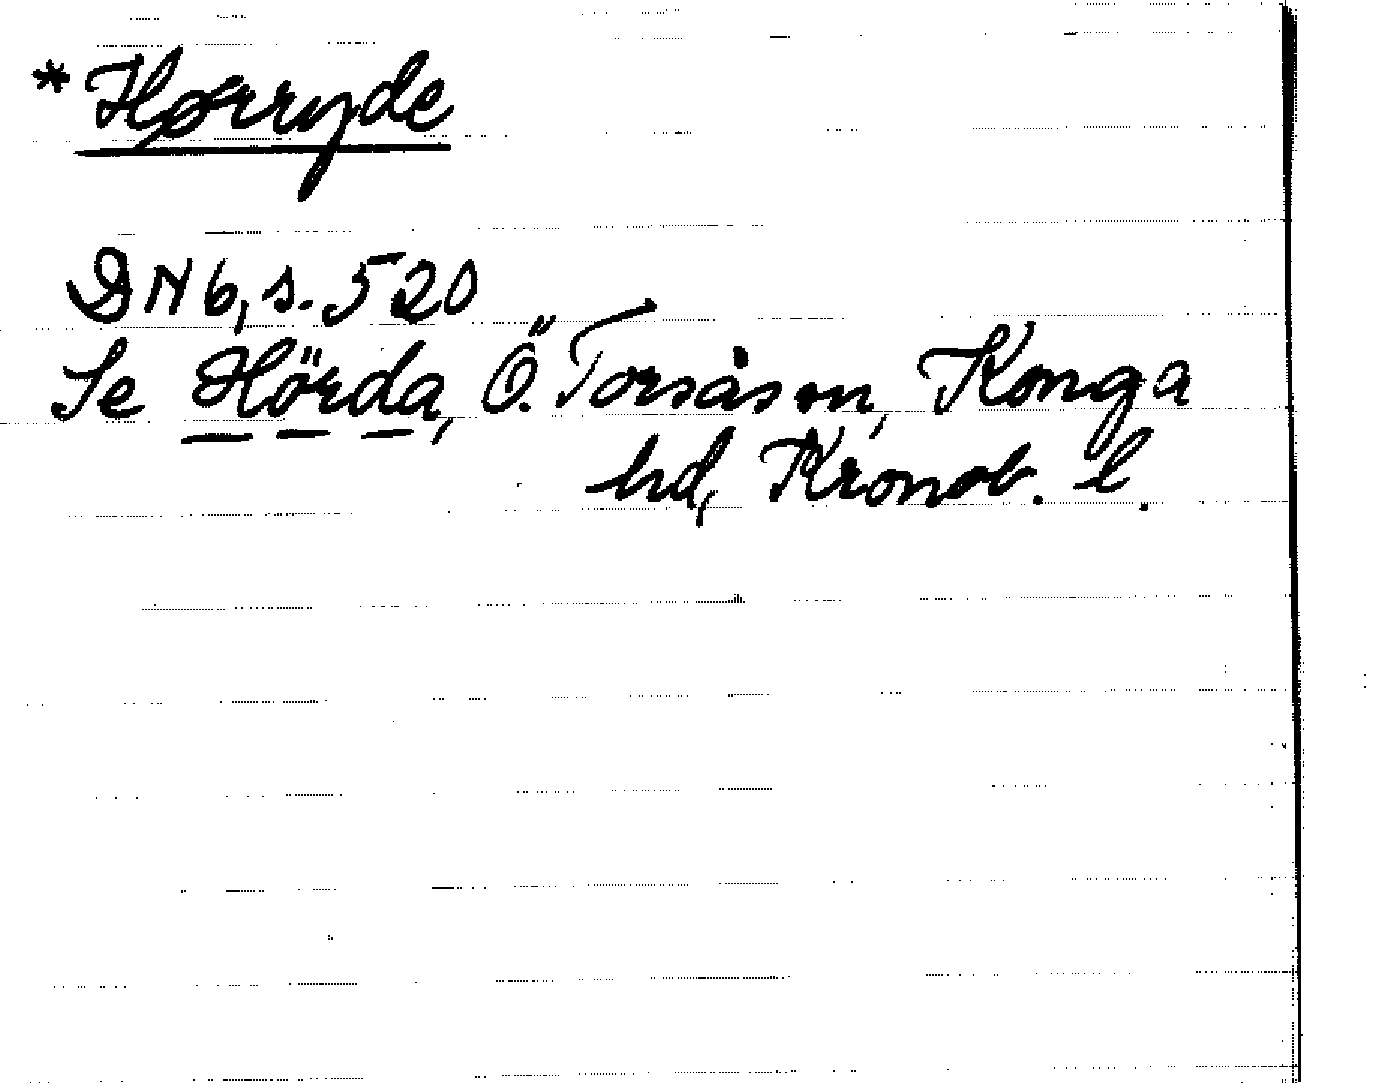 *Hørryde
DN 6, s. 520
Se Hörda, Ö. Torsås sn, Konga
hd, Kronob. l.